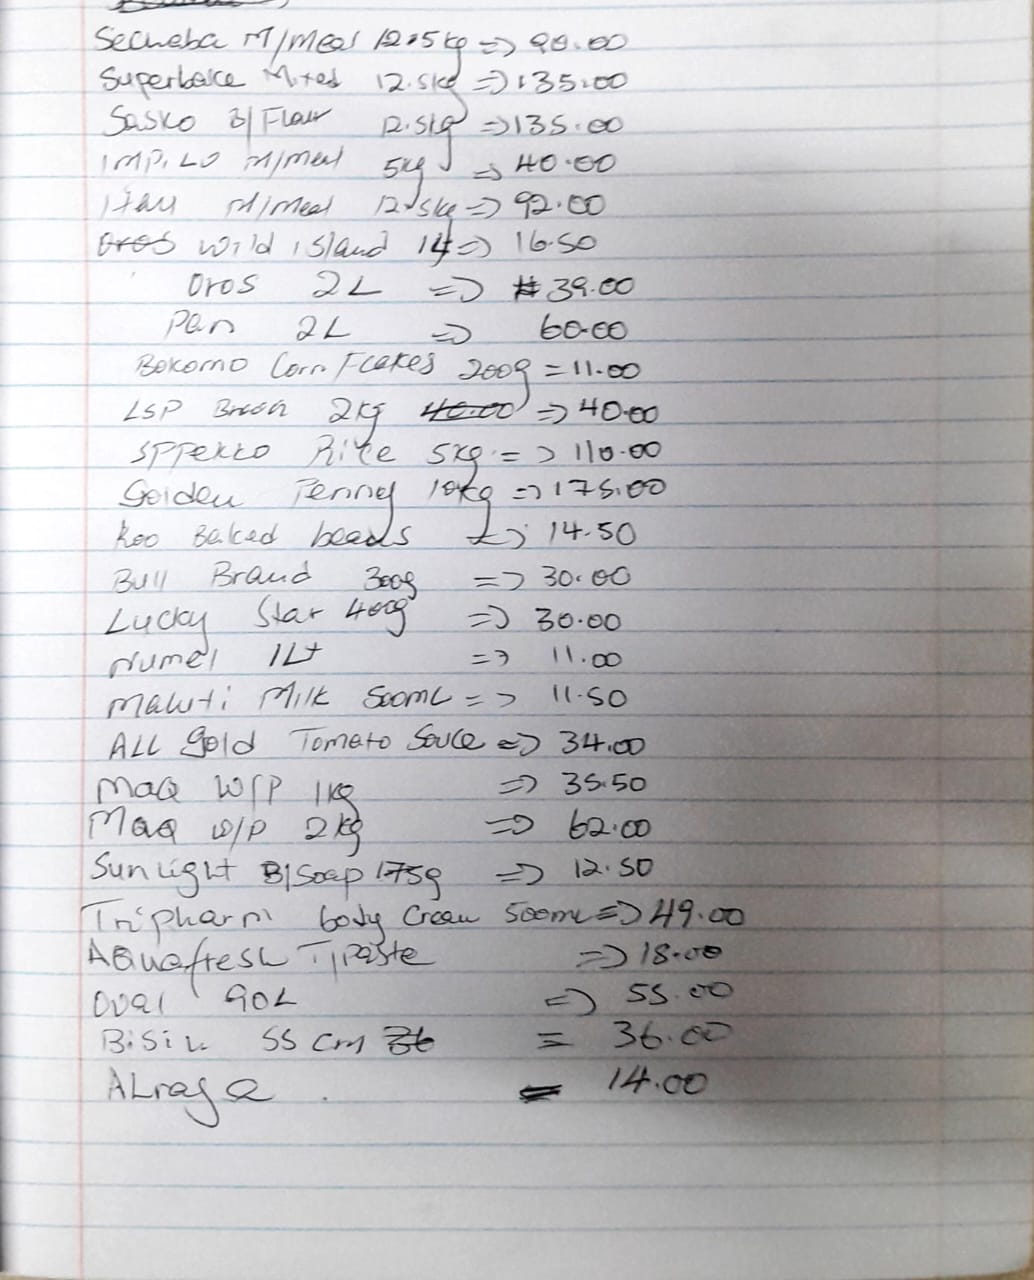 Secheba M/Meal 12.5kg => 90.00
Superbake Mixed 12.5kg => 135.00
Sasko B/Flour 12.5kg => 135.00
IMPILO M/meal 5kg => 40.00
Itau M/Meal 12.5kg => 92.00
Oros Wild Island => 16.50
Oros 2L => 39.00
Pan 2L => 60.00
Bokomo Corn Flakes 200g = 11.00
LSP 2kg 40.00 => 40.00
SPPekko Rite 5kg => 110.00
Golden Penney 10kg => 175.00
Koo Baked beads => 14.50
Bull Brand 300g => 30.00
Lucky Star 400g => 30.00
Numel 1Lt => 11.00
Maluti Milk 500mL => 11.50
ALL Gold Tomato Souce => 34.00
MaQ W/P 1kg => 35.50
Maq w/p 2kg => 62.00
Sunlight B/Soap 175g => 12.50
Tripharm body Cream 500mL => 49.00
AQuafresh T/Paste => 18.00
Oval 90L => 55.00
Bisin 55 cm 36 = 36.00
= 14.00